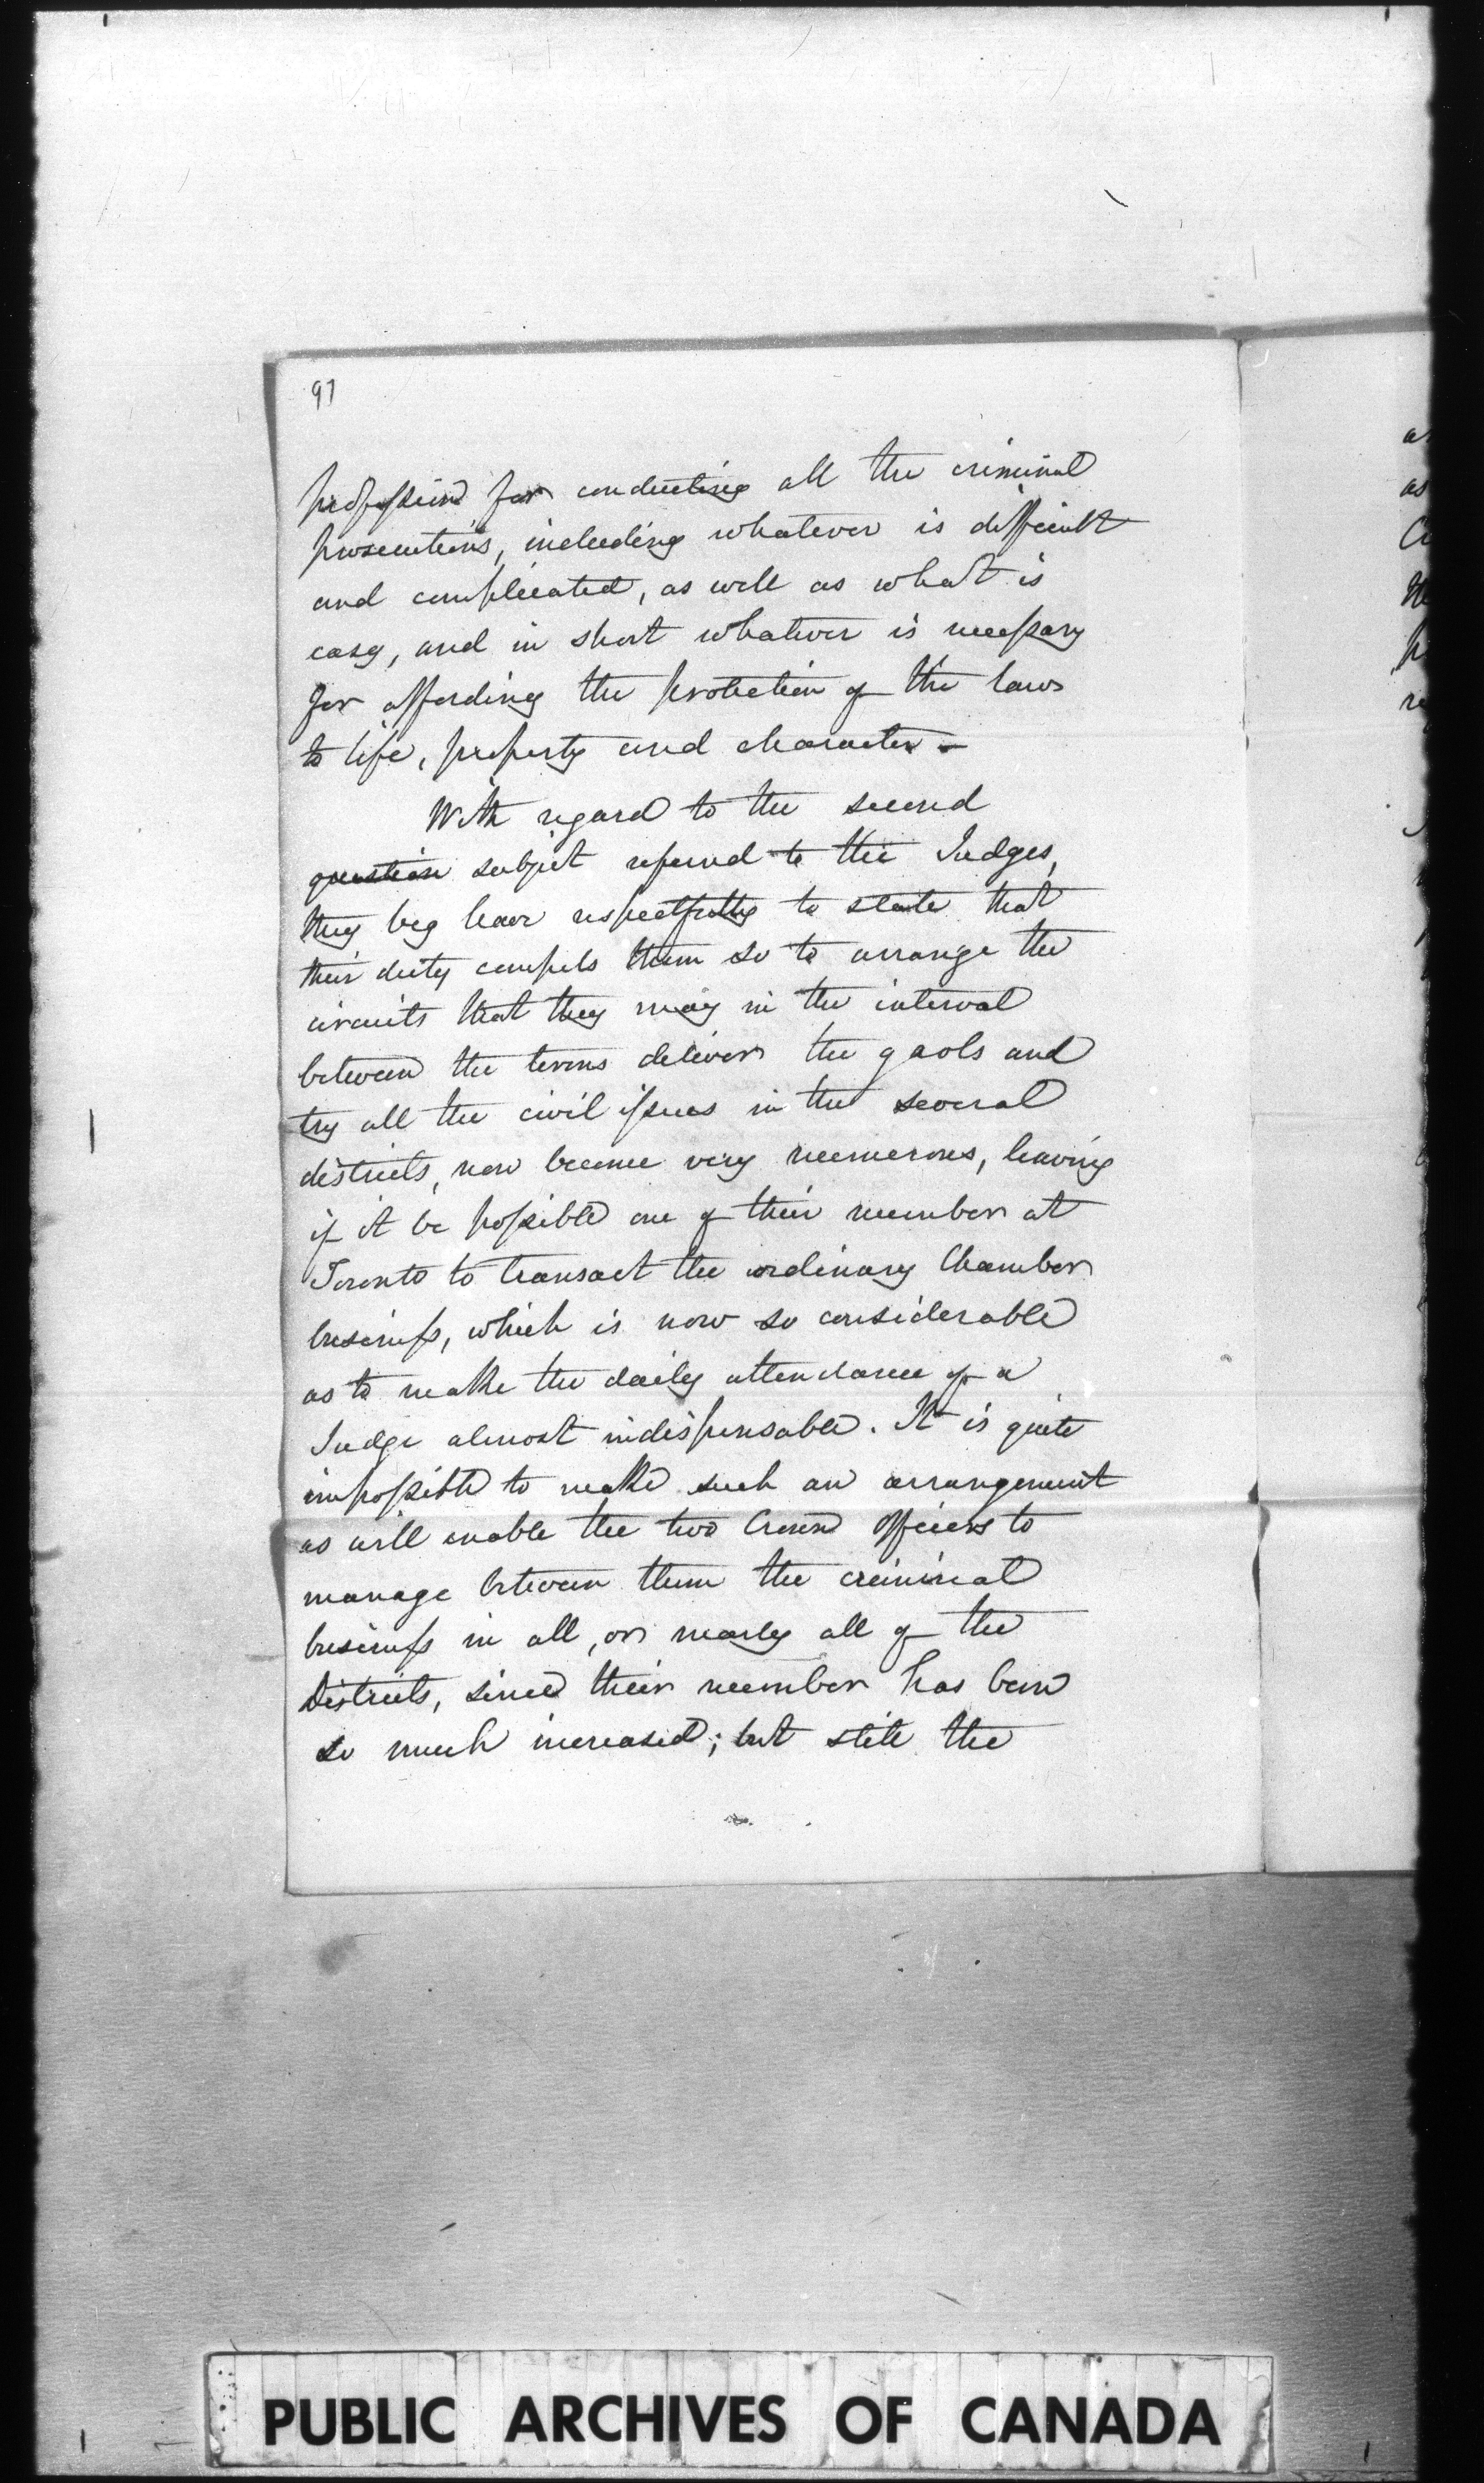 97
profession for conducting all the criminal
prosecutions, including whatever is difficult
and complicated, as well as what is
easy, and in short whatever is necessary
for affording the protection of the laws
to life, property and character –
With regard to the second
question subject referred to the Judges,
they beg leave respectfully to state that
their duty compels them so to arrange the
circuits that they may in the interval
between the terms deliver the gaols and
try all the civil issues in the several
districts, now become very numerous, leaving
if it be possible one of their number at
Toronto to transact the ordinary Chamber
business, which is now so considerable
as to make the daily attendance of a
Judge almost indispensable. It is quite
impossible to make such an arrangement
as will enable the two Crown Officers to
manage between them the criminal
business in all, or nearly all of the
Districts, since their number has been
so much increased; but still the
PUBLIC ARCHIVES OF CANADA